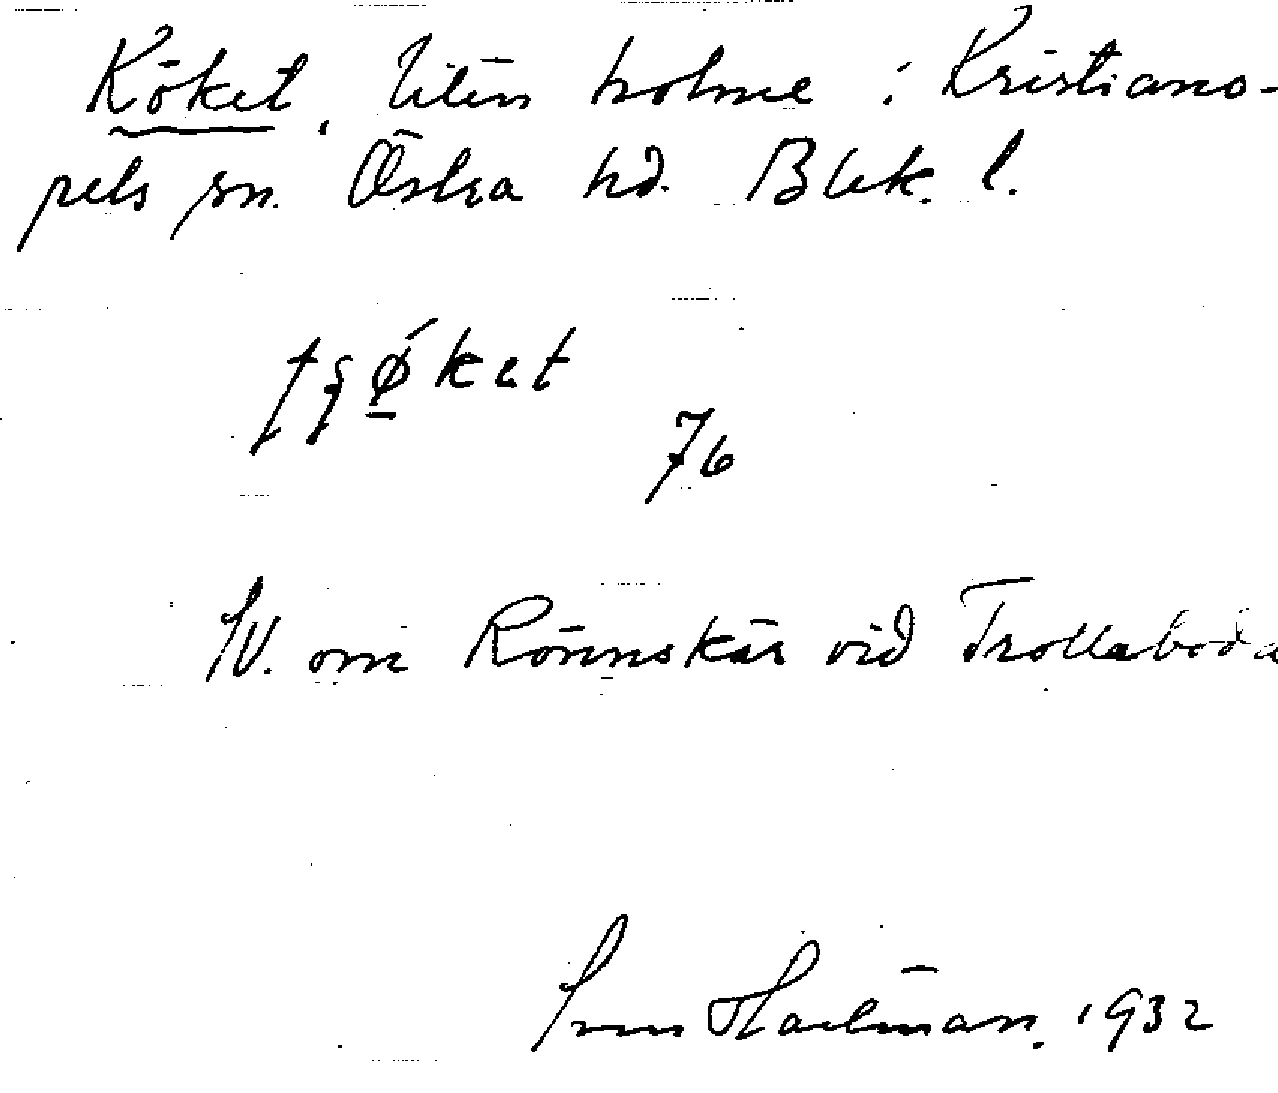 Köket, liten holme i Kristiano-
pels sn. Östra hd. Blek. l.
76
SV. om Rönnskär vid Trollaboda
Sven Hallman. 1932